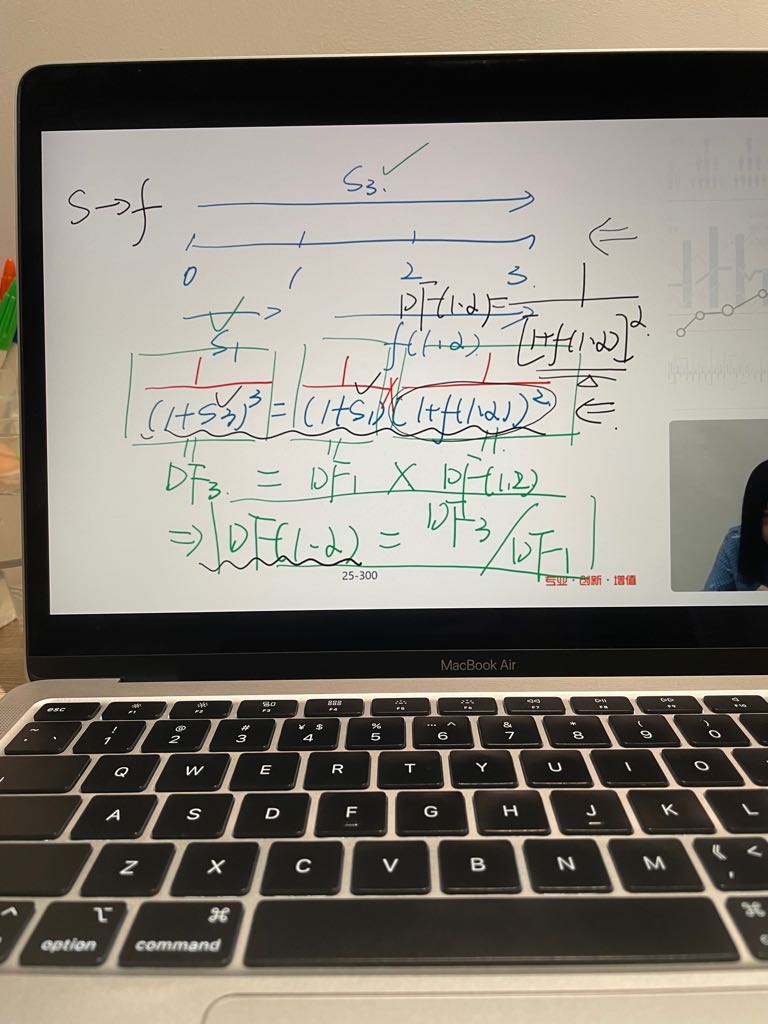 S3.
S→f
0 1 2 3.
DF(1,2)=1/[1+f(1,2)]²
S1
f(1,2)
1/(1+S3)³ = 1/(1+S1) × 1/(1+f(1,2))²
DF3. = DF1 × DF(1,2)
⇒ DF(1,2) = DF3/DF1
25-300
专业·创新·增值
MacBook Air
esc F1 F2 F3 F4 F5 F6 F7 F8 F9 F10
~ ` ! 1 @ 2 # 3 ¥ $ 4 % 5 … ^ 6 & 7 * 8 ( 9 ) 0
Q W E R T Y U I O
A S D F G H J K L
Z X C V B N M 《 < ,
^ ⌥ option ⌘ command ⌘